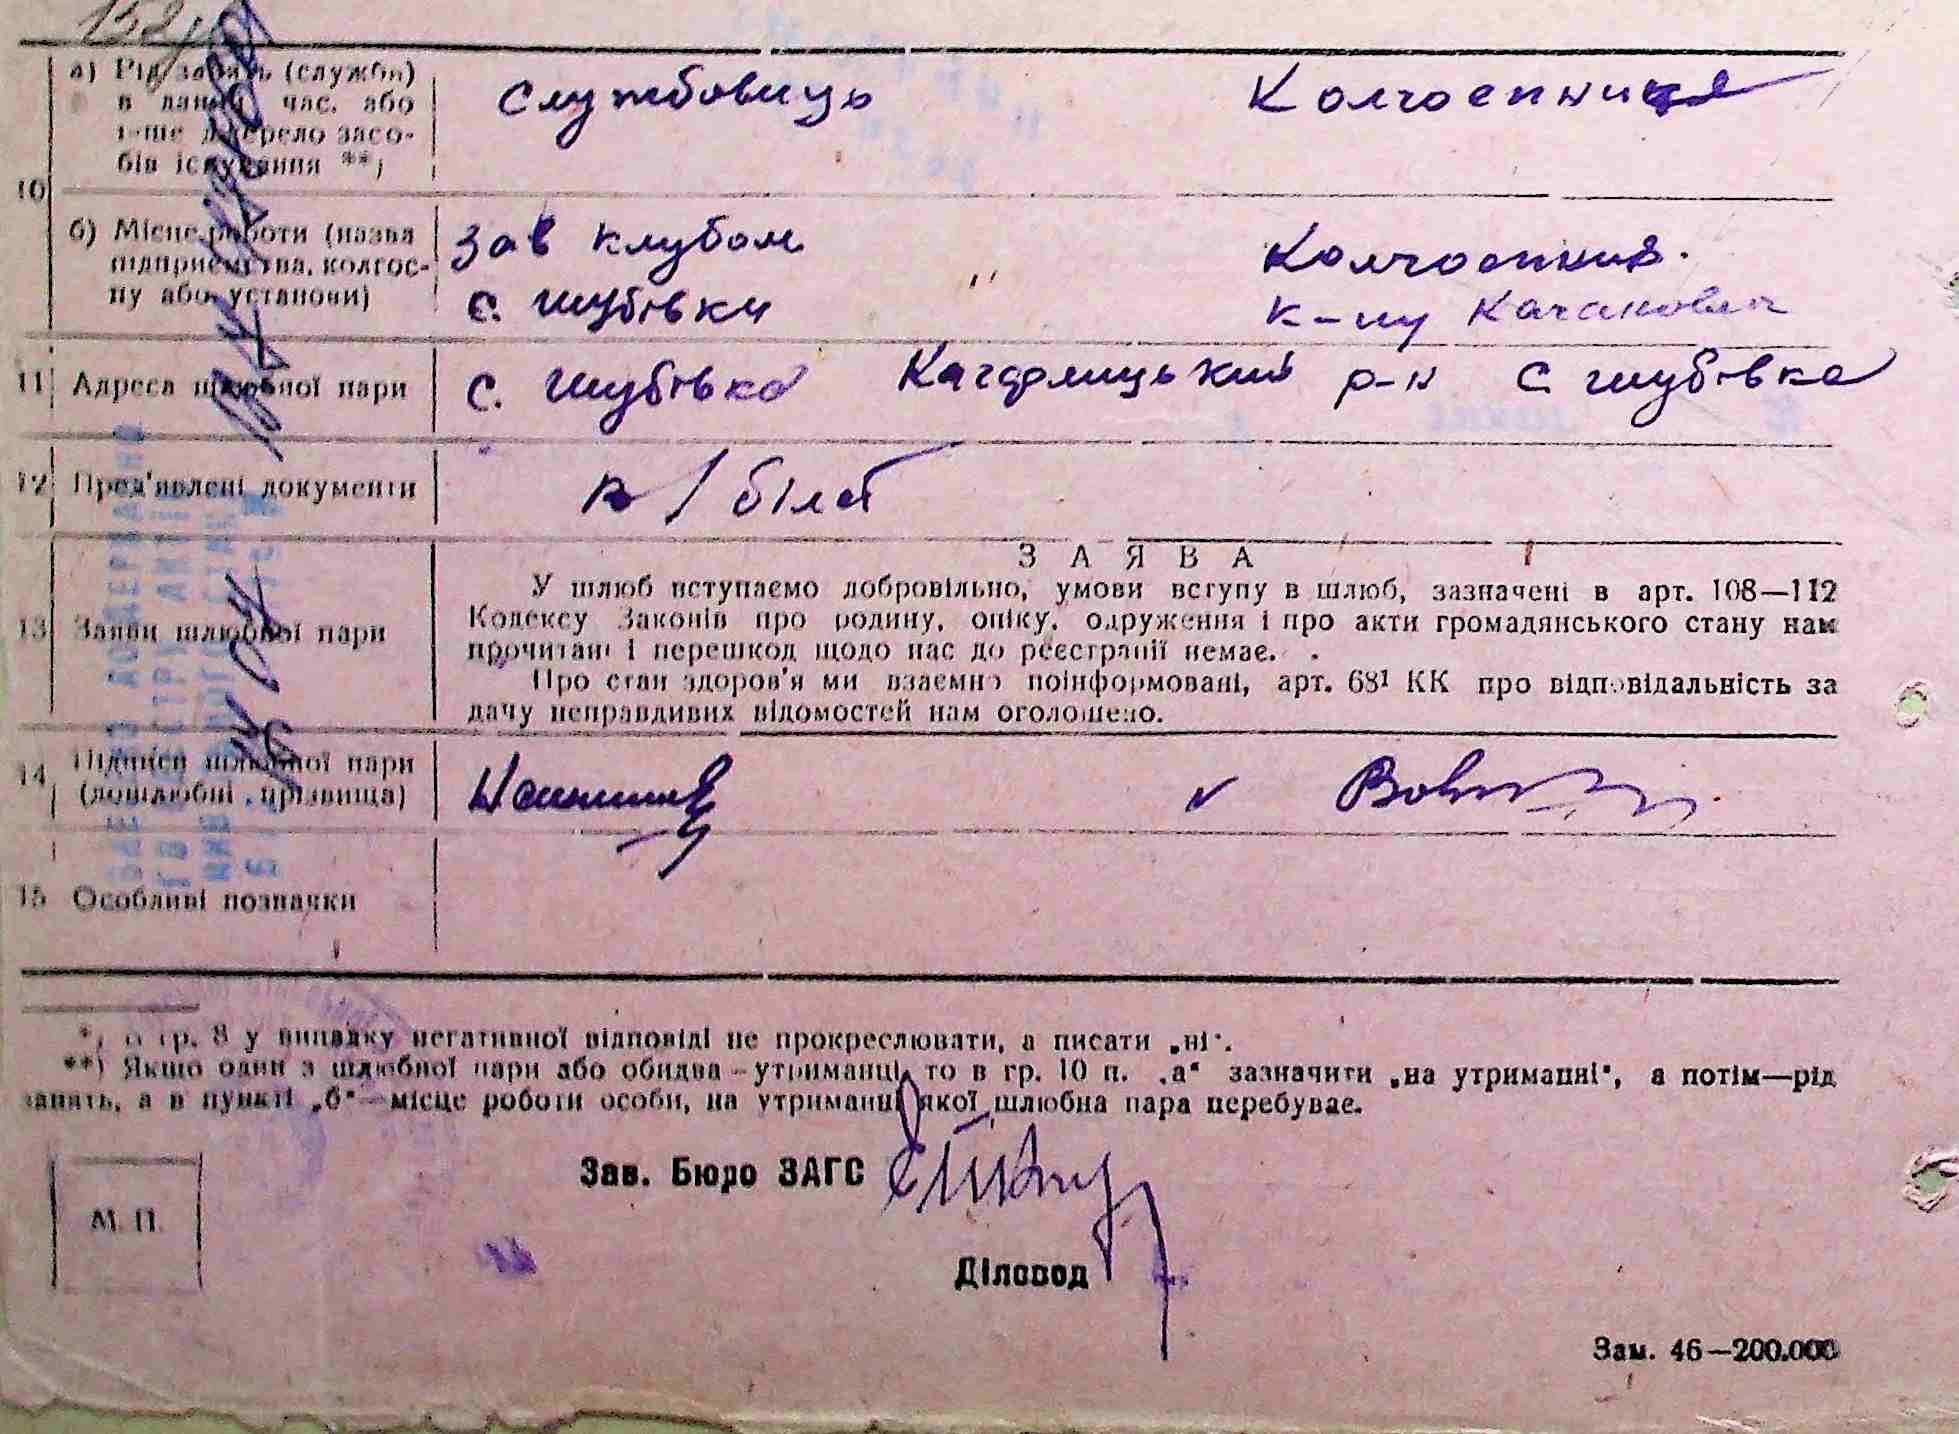 152
а) Рід занять (служби) в даний час, або інше джерело засобів існування **)
Службовець
Колгоспниця
10
б) Місце роботи (назва підприємства, колгоспу або установи)
Зав клубом
с. Шубівки
"
Колгоспниц.
к-пу
11 Адреса шлюбної пари
с. Шубівка Кагарлицький р-н с. Шубівка
12 Пред'явлені документи
в/білет
ЗАЯВА
13 Заяви шлюбної пари
У шлюб вступаємо добровільно, умови вступу в шлюб, зазначені в арт. 108—112
Кодексу Законів про родину, опіку, одруження і про акти громадянського стану нам
прочитані і перешкод щодо нас до реєстрації немає.
Про стан здоров'я ми взаємно поінформовані, арт. 68¹ КК про відповідальність за
дачу неправдивих відомостей нам оголошено.
14 Підписи шлюбної пари
(дошлюбні прізвища)
15 Особливі позначки
*) В гр. 8 у випадку негативної відповіді не прокреслювати, а писати „ні“.
**) Якщо один з шлюбної пари або обидва—утриманці, то в гр. 10 п. „а“ зазначити „на утриманні“, а потім—рід
занять, а в пункті „б“—місце роботи особи, на утриманні якої шлюбна пара перебуває.
Зав. Бюро ЗАГС
М. П.
Діловод
Зам. 46—200.000